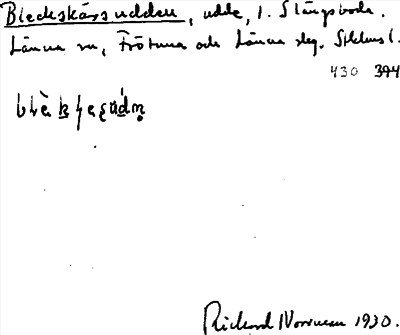 Bleckskärsudden, udde, l. Slängsboda.
Länna sn, Frötuna och Länna skg. Sthlms l.
430 394
Richard Norrman 1930.